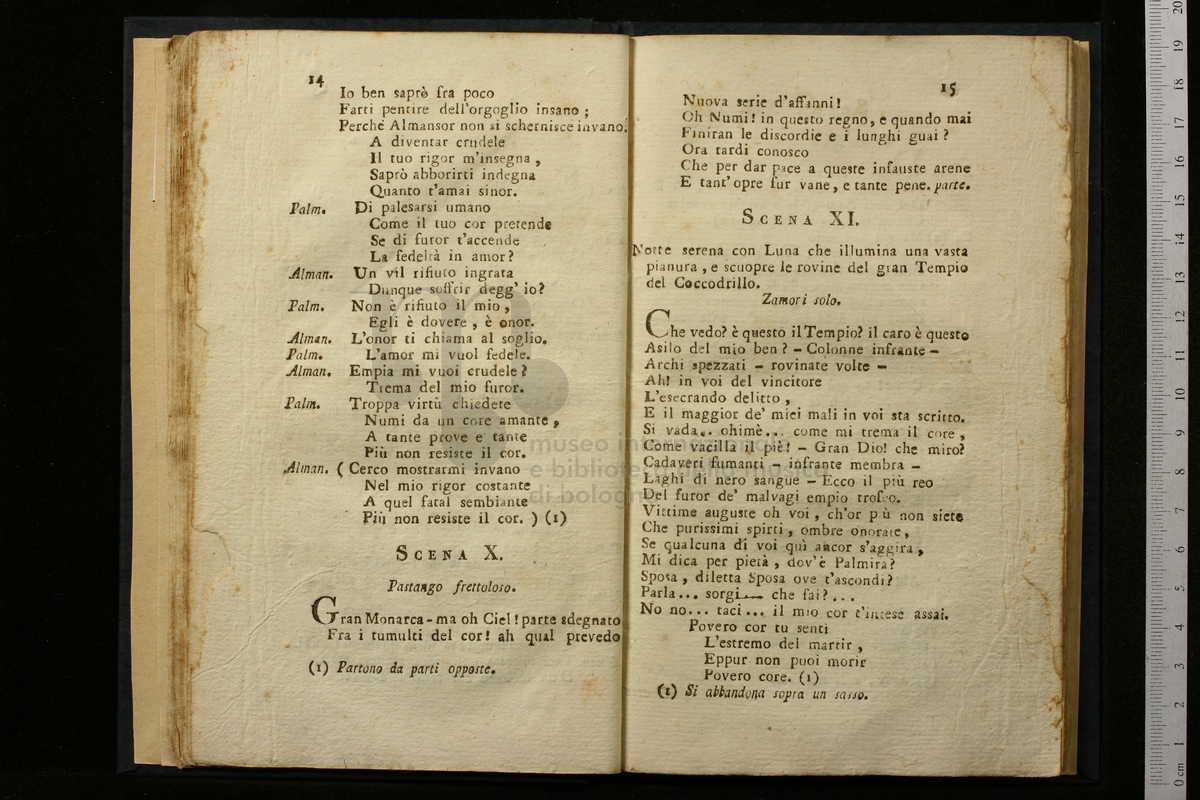 14
Io ben saprò fra poco
Farti pentire dell'orgoglio insano ;
Perchè Almansor non si schernisce invano.
A diventar crudele
Il tuo rigor m'insegna ,
Saprò abborirti indegna
Quanto t'amai sinor.
Palm. Di palesarsi umano
Come il tuo cor pretende
Se di furor t'accende
La fedeltà in amor?
Alman. Un vil rifiuto ingrata
Dunque soffrir degg' io?
Palm. Non è rifiuto il mio ,
Egli è dovere , è onor.
Alman. L'onor ti chiama al soglio.
Palm. L'amor mi vuol fedele.
Alman. Empia mi vuoi crudele ?
Trema del mio furor.
Palm. Troppa virtù chiedete
Numi da un core amante ,
A tante prove e tante
Più non resiste il cor.
Alman. ( Cerco mostrarmi invano
Nel mio rigor costante
A quel fatal sembiante
Più non resiste il cor. ) (1)
SCENA X.
Pastango frettoloso.
Gran Monarca - ma oh Ciel ! parte sdegnato
Fra i tumulti del cor ! ah qual prevedo
(1) Partono da parti opposte.
15
Nuova serie d'affanni !
Oh Numi ! in questo regno, e quando mai
Finiran le discordie e i lunghi guai ?
Ora tardi conosco
Che per dar pace a queste infauste arene
E tant' opre fur vane, e tante pene. parte.
SCENA XI.
Notte serena con Luna che illumina una vasta
pianura , e scuopre le rovine del gran Tempio
del Coccodrillo.
Zamori solo.
Che vedo? è questo il Tempio? il caro è questo
Asilo del mio ben ? – Colonne infrante –
Archi spezzati – rovinate volte –
Ah! in voi del vincitore
L'esecrando delitto ,
E il maggior de' miei mali in voi sta scritto.
Si vada.. ohimè... come mi trema il core ,
Come vacilla il piè! – Gran Dio! che miro?
Cadaveri fumanti – infrante membra –
Laghi di nero sangue – Ecco il più reo
Del furor de' malvagi empio trofeo.
Vittime auguste oh voi , ch'or più non siete
Che purissimi spirti , ombre onorate ,
Se qualcuna di voi quì ancor s'aggira ,
Mi dica per pietà , dov'è Palmira?
Sposa , diletta Sposa ove t'ascondi?
Parla... sorgi— che fai?...
No no... taci... il mio cor t'intese assai.
Povero cor tu senti
L'estremo del martir ,
Eppur non puoi morir
Povero core. (1)
(1) Si abbandona sopra un sasso.
museo internazionale
e biblioteca della musica
di bologna
20
19
18
17
16
15
14
13
12
11
10
9
8
7
6
5
4
3
2
1
0 cm